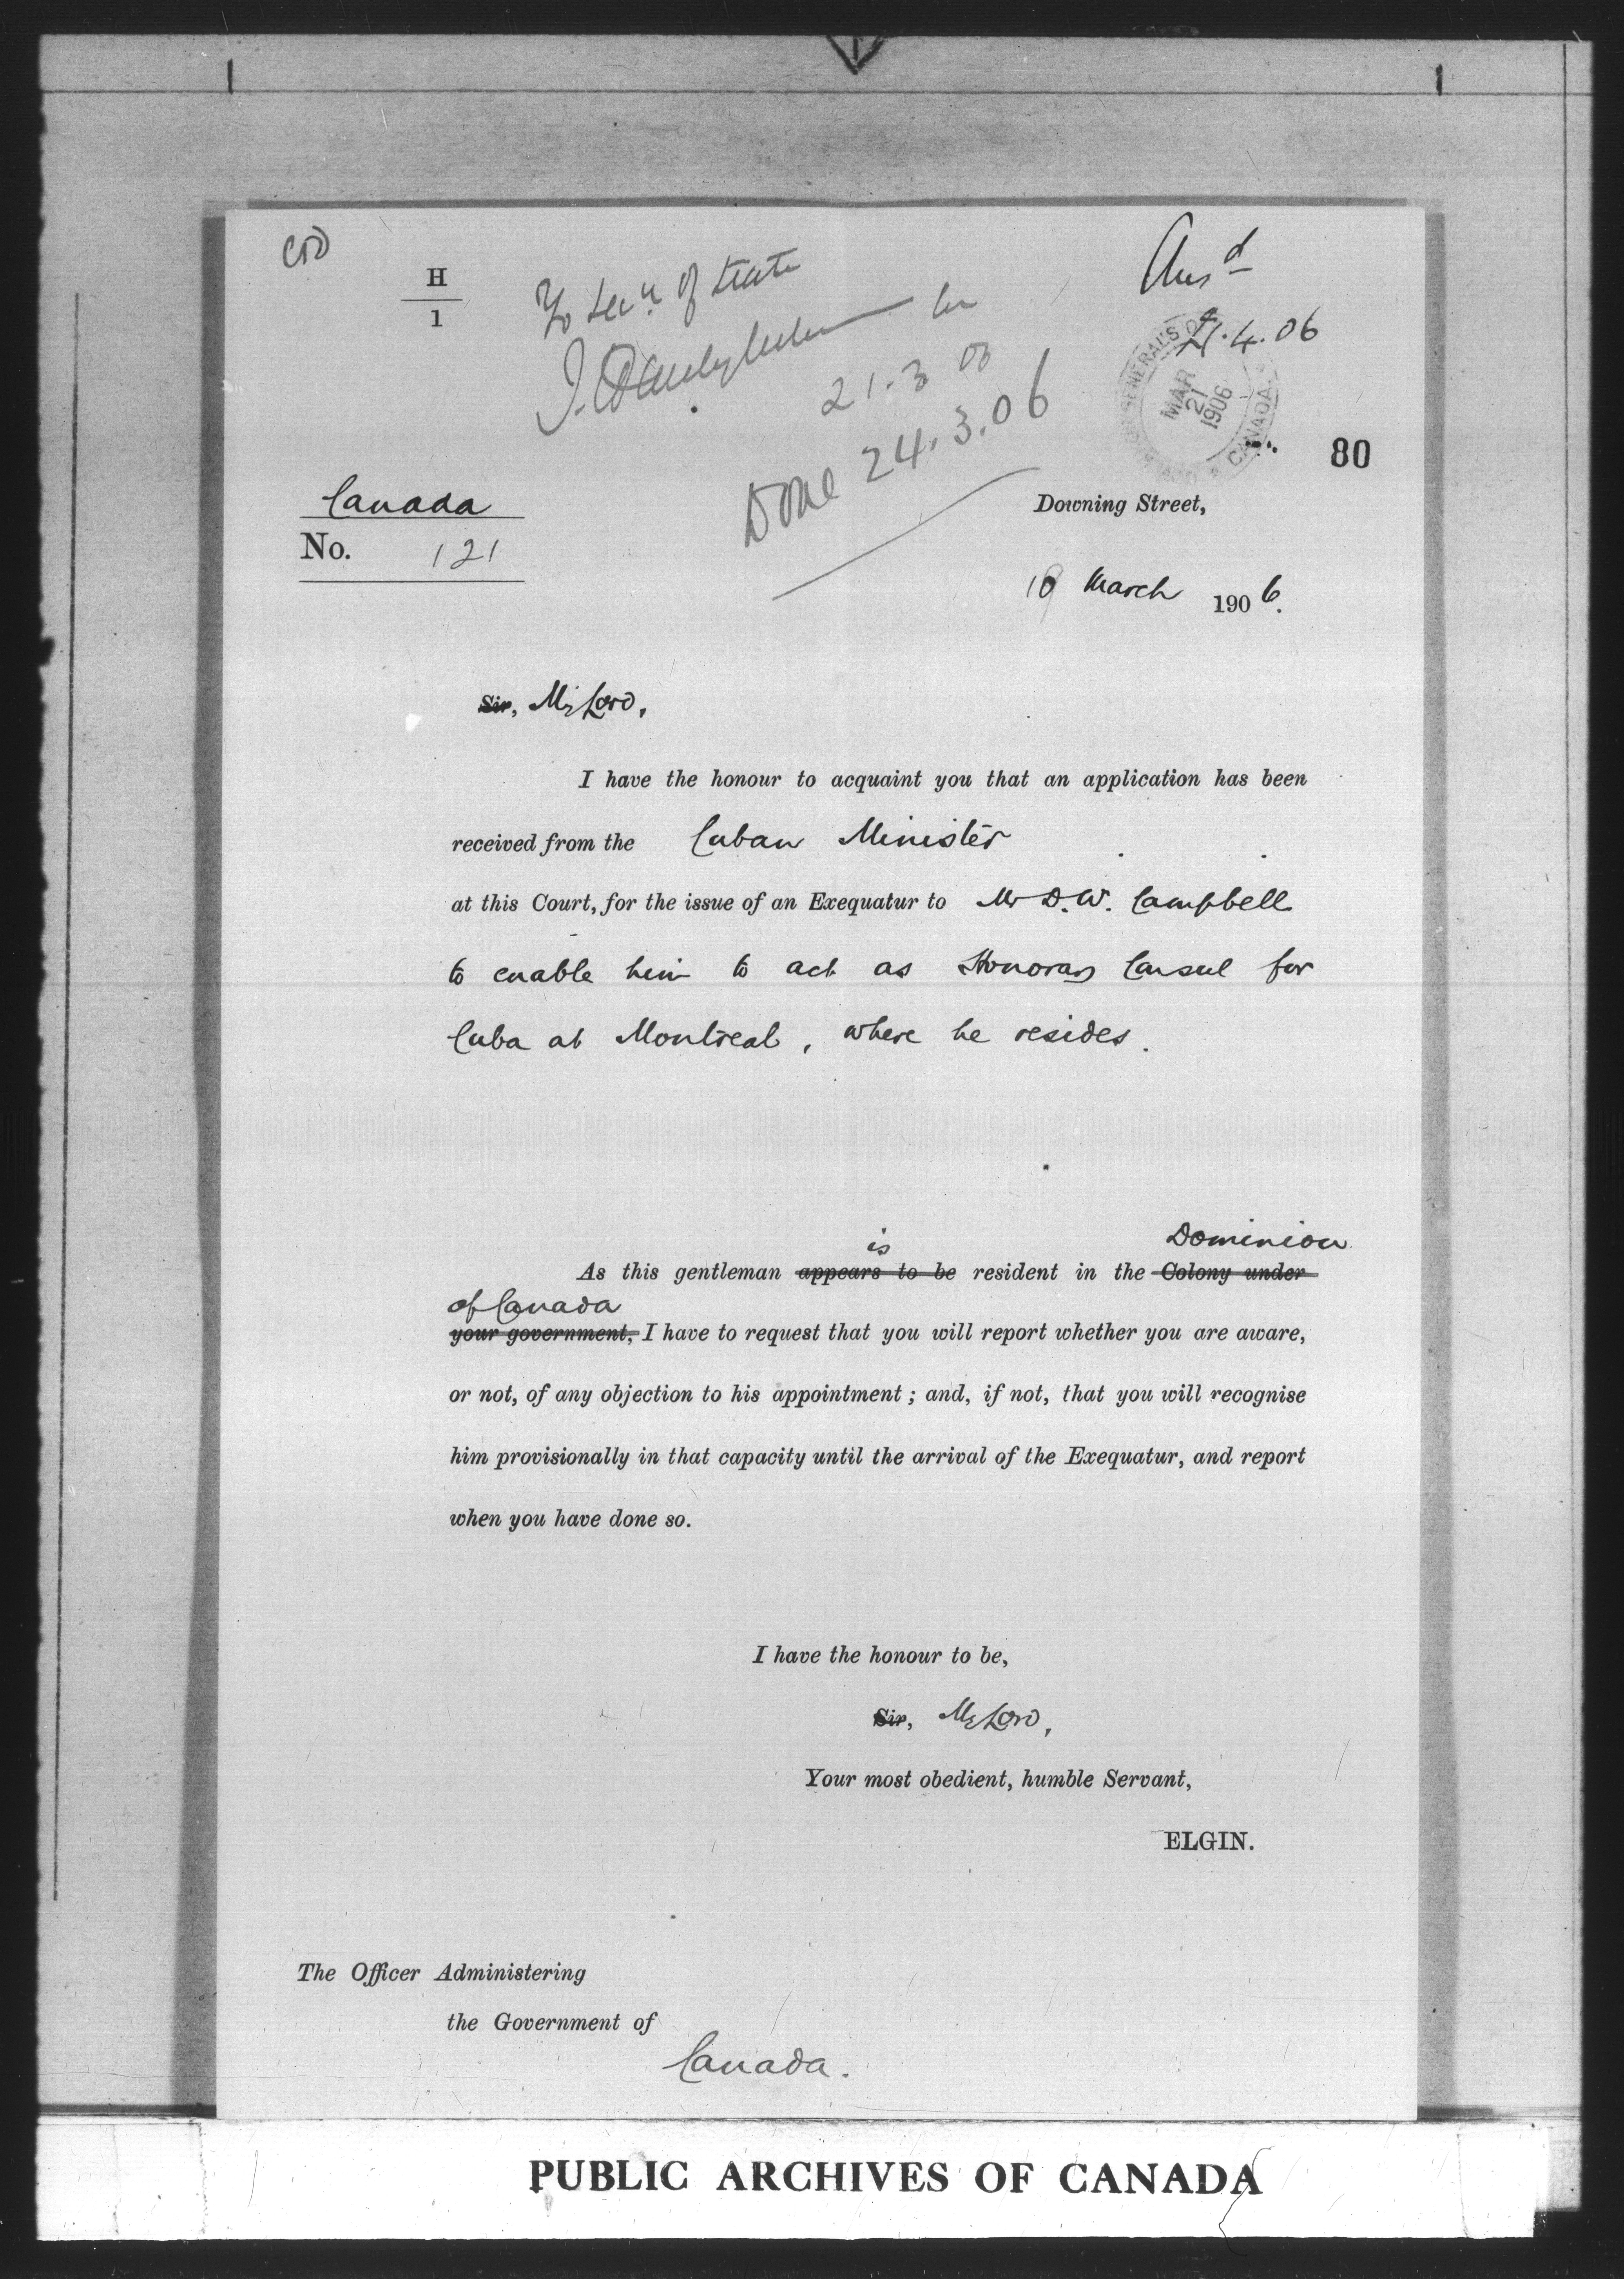 H
1
To Secy. of State
21.3.06
Done 24.3.06
Ansd
21.4.06
GOVERNOR GENERAL'S OFFICE
MAR
21
1906
CANADA
80
Canada
No. 121
Downing Street,
March 1906.
Sir, My Lord,
I have the honour to acquaint you that an application has been
received from the Cuban Minister
at this Court, for the issue of an Exequatur to Mr D.W. Campbell
to enable him to act as Honorary Consul for
Cuba at Montreal, where he resides.
is Dominion
As this gentleman appears to be resident in the Colony under
of Canada
your government, I have to request that you will report whether you are aware,
or not, of any objection to his appointment; and, if not, that you will recognise
him provisionally in that capacity until the arrival of the Exequatur, and report
when you have done so.
I have the honour to be,
Sir, My Lord,
Your most obedient, humble Servant,
ELGIN.
The Officer Administering
the Government of
Canada.
PUBLIC ARCHIVES OF CANADA